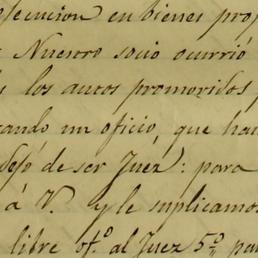 esecucion en bienes prop
Nuestro socio ocurrió
los autos promovidos p
tando un oficio, que ha
dejó de ser Juez: para
á V. y le suplicamos
libre of.º al Juez 5º pa